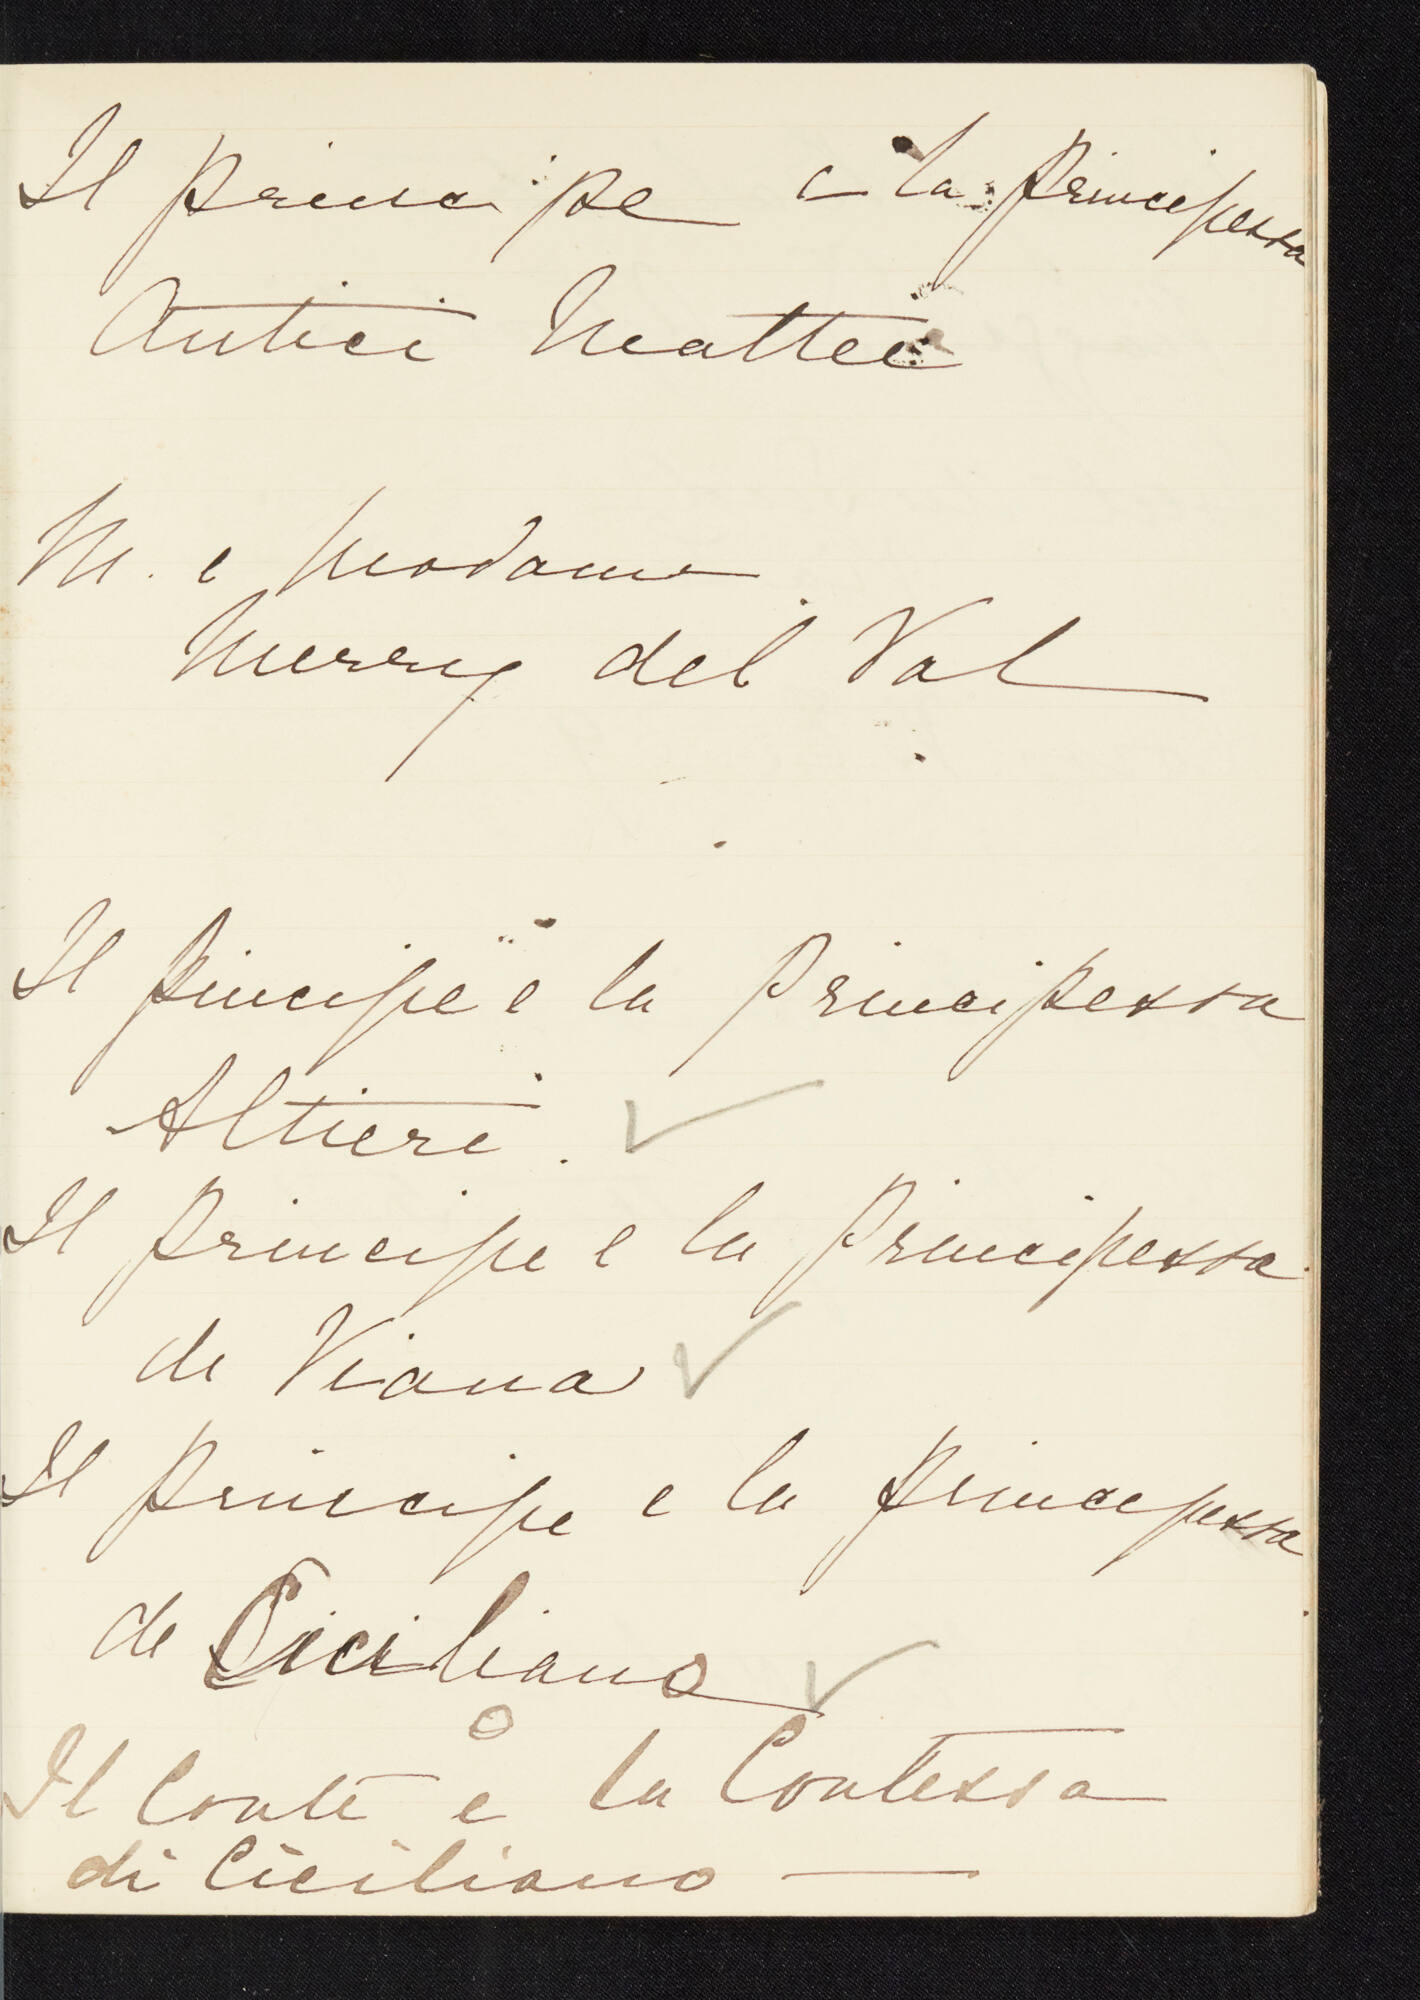 Il principe e la principessa
Antici Mattei
M. e Madame
Merry del Val
Il Principe e la Principessa
Altieri.
Il Principe e la Principessa
di Viana
Il Principe e la Principessa
di Ciciliano
Il Conte e la Contessa
di Ciciliano